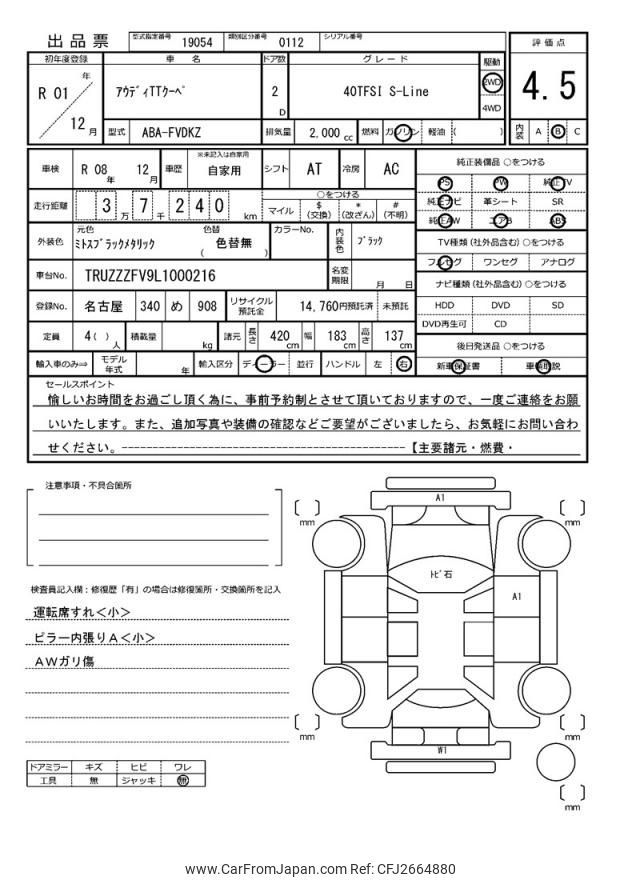 出品票
型式指定番号 19054 類別区分番号 0112 シリアル番号
評価点
4.5
内装 A B C
初年度登録 車名 ドア数 グレード 駆動
R 01 年 12 月
アウディTTクーペ 2 D 40TFSI S-Line 2WD 4WD
型式 ABA-FVDKZ 排気量 2,000 cc 燃料 ガソリン 軽油 ( )
車検 R 08 年 12 月 車歴 ※未記入は自家用 自家用 シフト AT 冷房 AC
走行距離 3 万 7 千 2 4 0 km
○をつける
マイル $(交換) *(改ざん) #(不明)
外装色 元色 ミトスブラックメタリック 色替 色替無 ( ) カラーNo. 内装色 ブラック
車台No. TRUZZZFV9L1000216 名変期限 月 日
登録No. 名古屋 340 め 908 リサイクル預託金 14,760円預託済 未預託
定員 4( )人 積載量 kg 諸元 長さ 420 cm 幅 183 cm 高さ 137 cm
輸入車のみ⇨ モデル年式 年 輸入区分 ディーラー 並行 ハンドル 左 右
純正装備品 ○をつける
PS PW 純正TV
純正ナビ 革シート SR
純正AW エアB ABS
TV種類(社外品含む) ○をつける
フルセグ ワンセグ アナログ
ナビ種類(社外品含む) ○をつける
HDD DVD SD
DVD再生可 CD
後日発送品 ○をつける
新車保証書 車輌取説
セールスポイント
愉しいお時間をお過ごし頂く為に、事前予約制とさせて頂いておりますので、一度ご連絡をお願
いいたします。また、追加写真や装備の確認などご要望がございましたら、お気軽にお問い合わ
せください。------------------------------------------【主要諸元・燃費・
注意事項・不具合箇所
検査員記入欄：修復歴「有」の場合は修復箇所・交換箇所を記入
運転席すれ<小>
ピラー内張りA<小>
AWガリ傷
ドアミラー キズ ヒビ ワレ
工具 無 ジャッキ 無
A1
トビ石
A1
W1
mm
mm
mm
mm
mm
www.CarFromJapan.com Ref: CFJ2664880